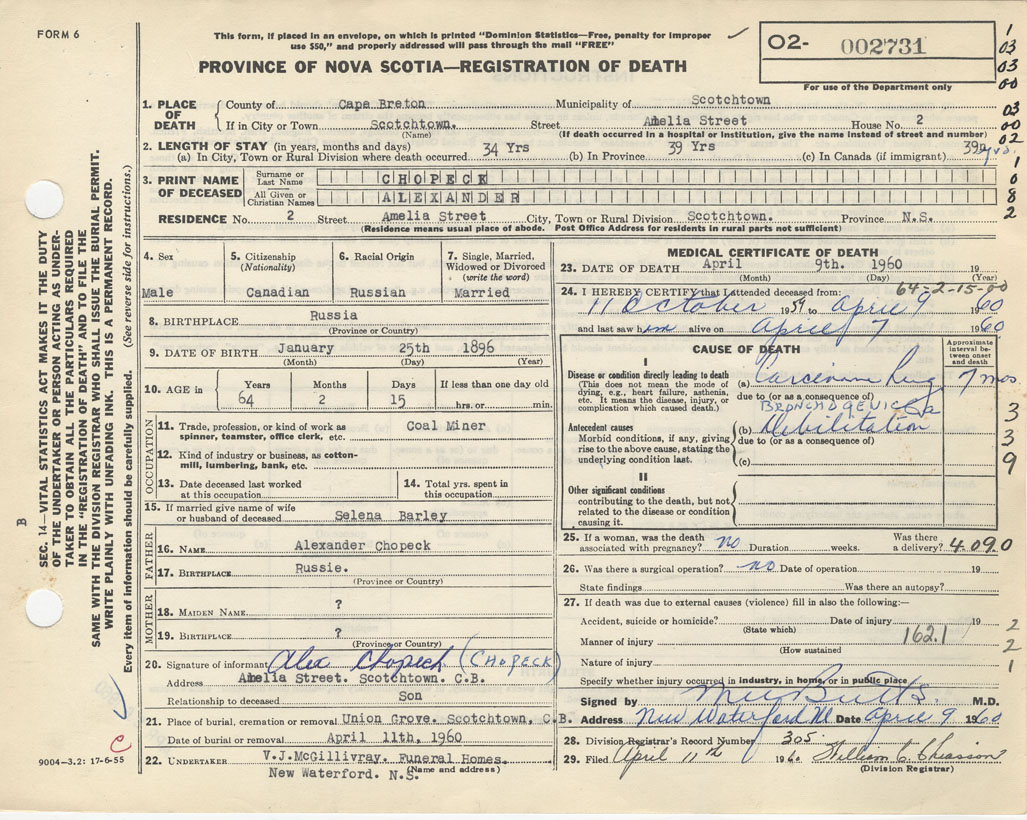 FORM 6
This form, if placed in an envelope, on which is printed "Dominion Statistics—Free, penalty for improper
use $50," and properly addressed will pass through the mail "FREE"
O2- 002731
For use of the Department only
PROVINCE OF NOVA SCOTIA—REGISTRATION OF DEATH
1. PLACE OF DEATH { County of Cape Breton Municipality of Scotchtown
If in City or Town Scotchtown. Street Amelia Street House No. 2
(Name) (If death occurred in a hospital or institution, give the name instead of street and number)
2. LENGTH OF STAY (in years, months and days)
(a) In City, Town or Rural Division where death occurred 34 Yrs (b) In Province 39 Yrs (c) In Canada (if immigrant) 39 yrs.
3. PRINT NAME OF DECEASED { Surname or Last Name CHOPECK
All Given or Christian Names ALEXANDER
RESIDENCE No. 2 Street Amelia Street City, Town or Rural Division Scotchtown. Province N.S.
(Residence means usual place of abode. Post Office Address for residents in rural parts not sufficient)
1
03
03
00
03
00
02
1
0
8
2
4. Sex Male
5. Citizenship (Nationality) Canadian
6. Racial Origin Russian
7. Single, Married, Widowed or Divorced (write the word) Married
8. BIRTHPLACE Russia
(Province or Country)
9. DATE OF BIRTH January 25th 1896
(Month) (Day) (Year)
10. AGE in Years 64 Months 2 Days 15 If less than one day old
hrs. or min.
OCCUPATION
11. Trade, profession, or kind of work as spinner, teamster, office clerk, etc. Coal Miner
12. Kind of industry or business, as cotton-mill, lumbering, bank, etc.
13. Date deceased last worked at this occupation
14. Total yrs. spent in this occupation
15. If married give name of wife or husband of deceased Selena Barley
FATHER
16. NAME Alexander Chopeck
17. BIRTHPLACE Russie.
(Province or Country)
MOTHER
18. MAIDEN NAME ?
19. BIRTHPLACE ?
(Province or Country)
20. Signature of informant Alex Chopeck (CHOPECK)
Address Amelia Street. Scotchtown. C.B.
Relationship to deceased Son
21. Place of burial, cremation or removal Union Grove. Scotchtown, C.B.
Date of burial or removal April 11th, 1960
22. UNDERTAKER V.J.McGillivray. Funeral Homes.
New Waterford. N.S.
(Name and address)
MEDICAL CERTIFICATE OF DEATH
23. DATE OF DEATH April 9th. 1960 19
(Month) (Day) (Year)
64-2-15-00
24. I HEREBY CERTIFY that I attended deceased from:
11 October 1959 to April 9 1960
and last saw him alive on April 7 1960
CAUSE OF DEATH
Approximate interval between onset and death
I
Disease or condition directly leading to death
(This does not mean the mode of dying, e.g., heart failure, asthenia, etc. It means the disease, injury, or complication which caused death.)
(a) Carcinoma Lung 7 mos
due to (or as a consequence of)
BRONCHOGENIC
Antecedent causes
Morbid conditions, if any, giving rise to the above cause, stating the underlying condition last.
(b) Debilitation
due to (or as a consequence of)
(c)
3
3
9
II
Other significant conditions
contributing to the death, but not related to the disease or condition causing it.
25. If a woman, was the death associated with pregnancy? no Duration weeks. Was there a delivery?
4.090
26. Was there a surgical operation? no Date of operation 19
State findings Was there an autopsy?
27. If death was due to external causes (violence) fill in also the following:—
Accident, suicide or homicide? Date of injury 19
(State which)
Manner of injury 162.1
(How sustained)
Nature of injury
2
2
1
Specify whether injury occurred in industry, in home, or in public place
Signed by Butts. M.D.
Address New Waterford Date April 9 1960
28. Division Registrar's Record Number 305
29. Filed April 11th 1960 William C. Chiasson
(Division Registrar)
SEC. 14—VITAL STATISTICS ACT MAKES IT THE DUTY
OF THE UNDERTAKER OR PERSON ACTING AS UNDER-
TAKER TO OBTAIN ALL THE PARTICULARS REQUIRED
IN THE "REGISTRATION OF DEATH" AND TO FILE THE
SAME WITH THE DIVISION REGISTRAR WHO SHALL ISSUE THE BURIAL PERMIT.
WRITE PLAINLY WITH UNFADING INK. THIS IS A PERMANENT RECORD.
Every item of information should be carefully supplied. (See reverse side for instructions.)
B
C
9004—3.2: 17-6-55